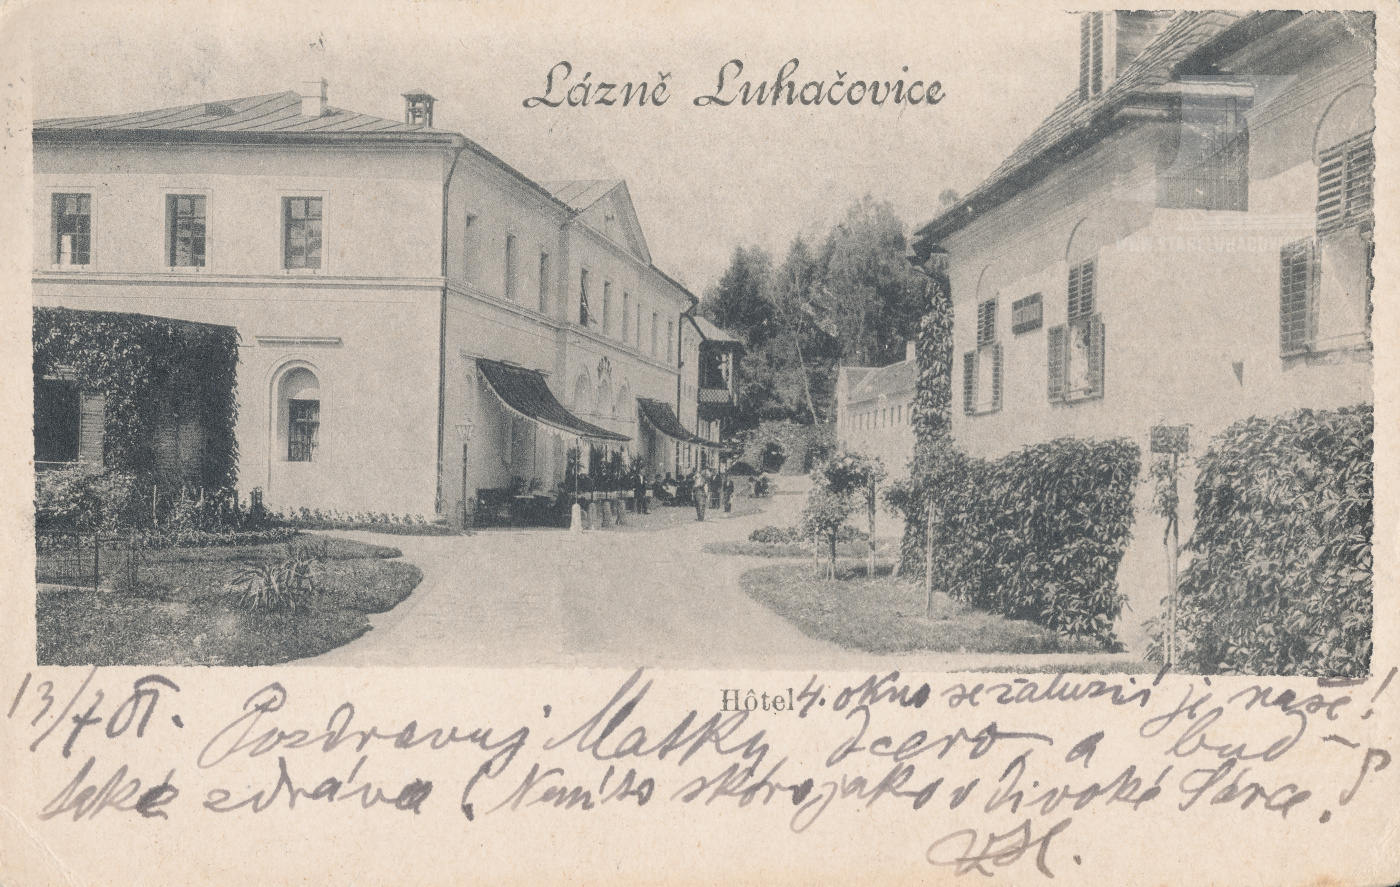 Lázně Luhačovice
Hôtel
4. okno se žaluzií je naše!
13/7 01. Pozdravuj Matky dcero, a buď
také zdráva! Není to skoro jako v Divoké Šárce?